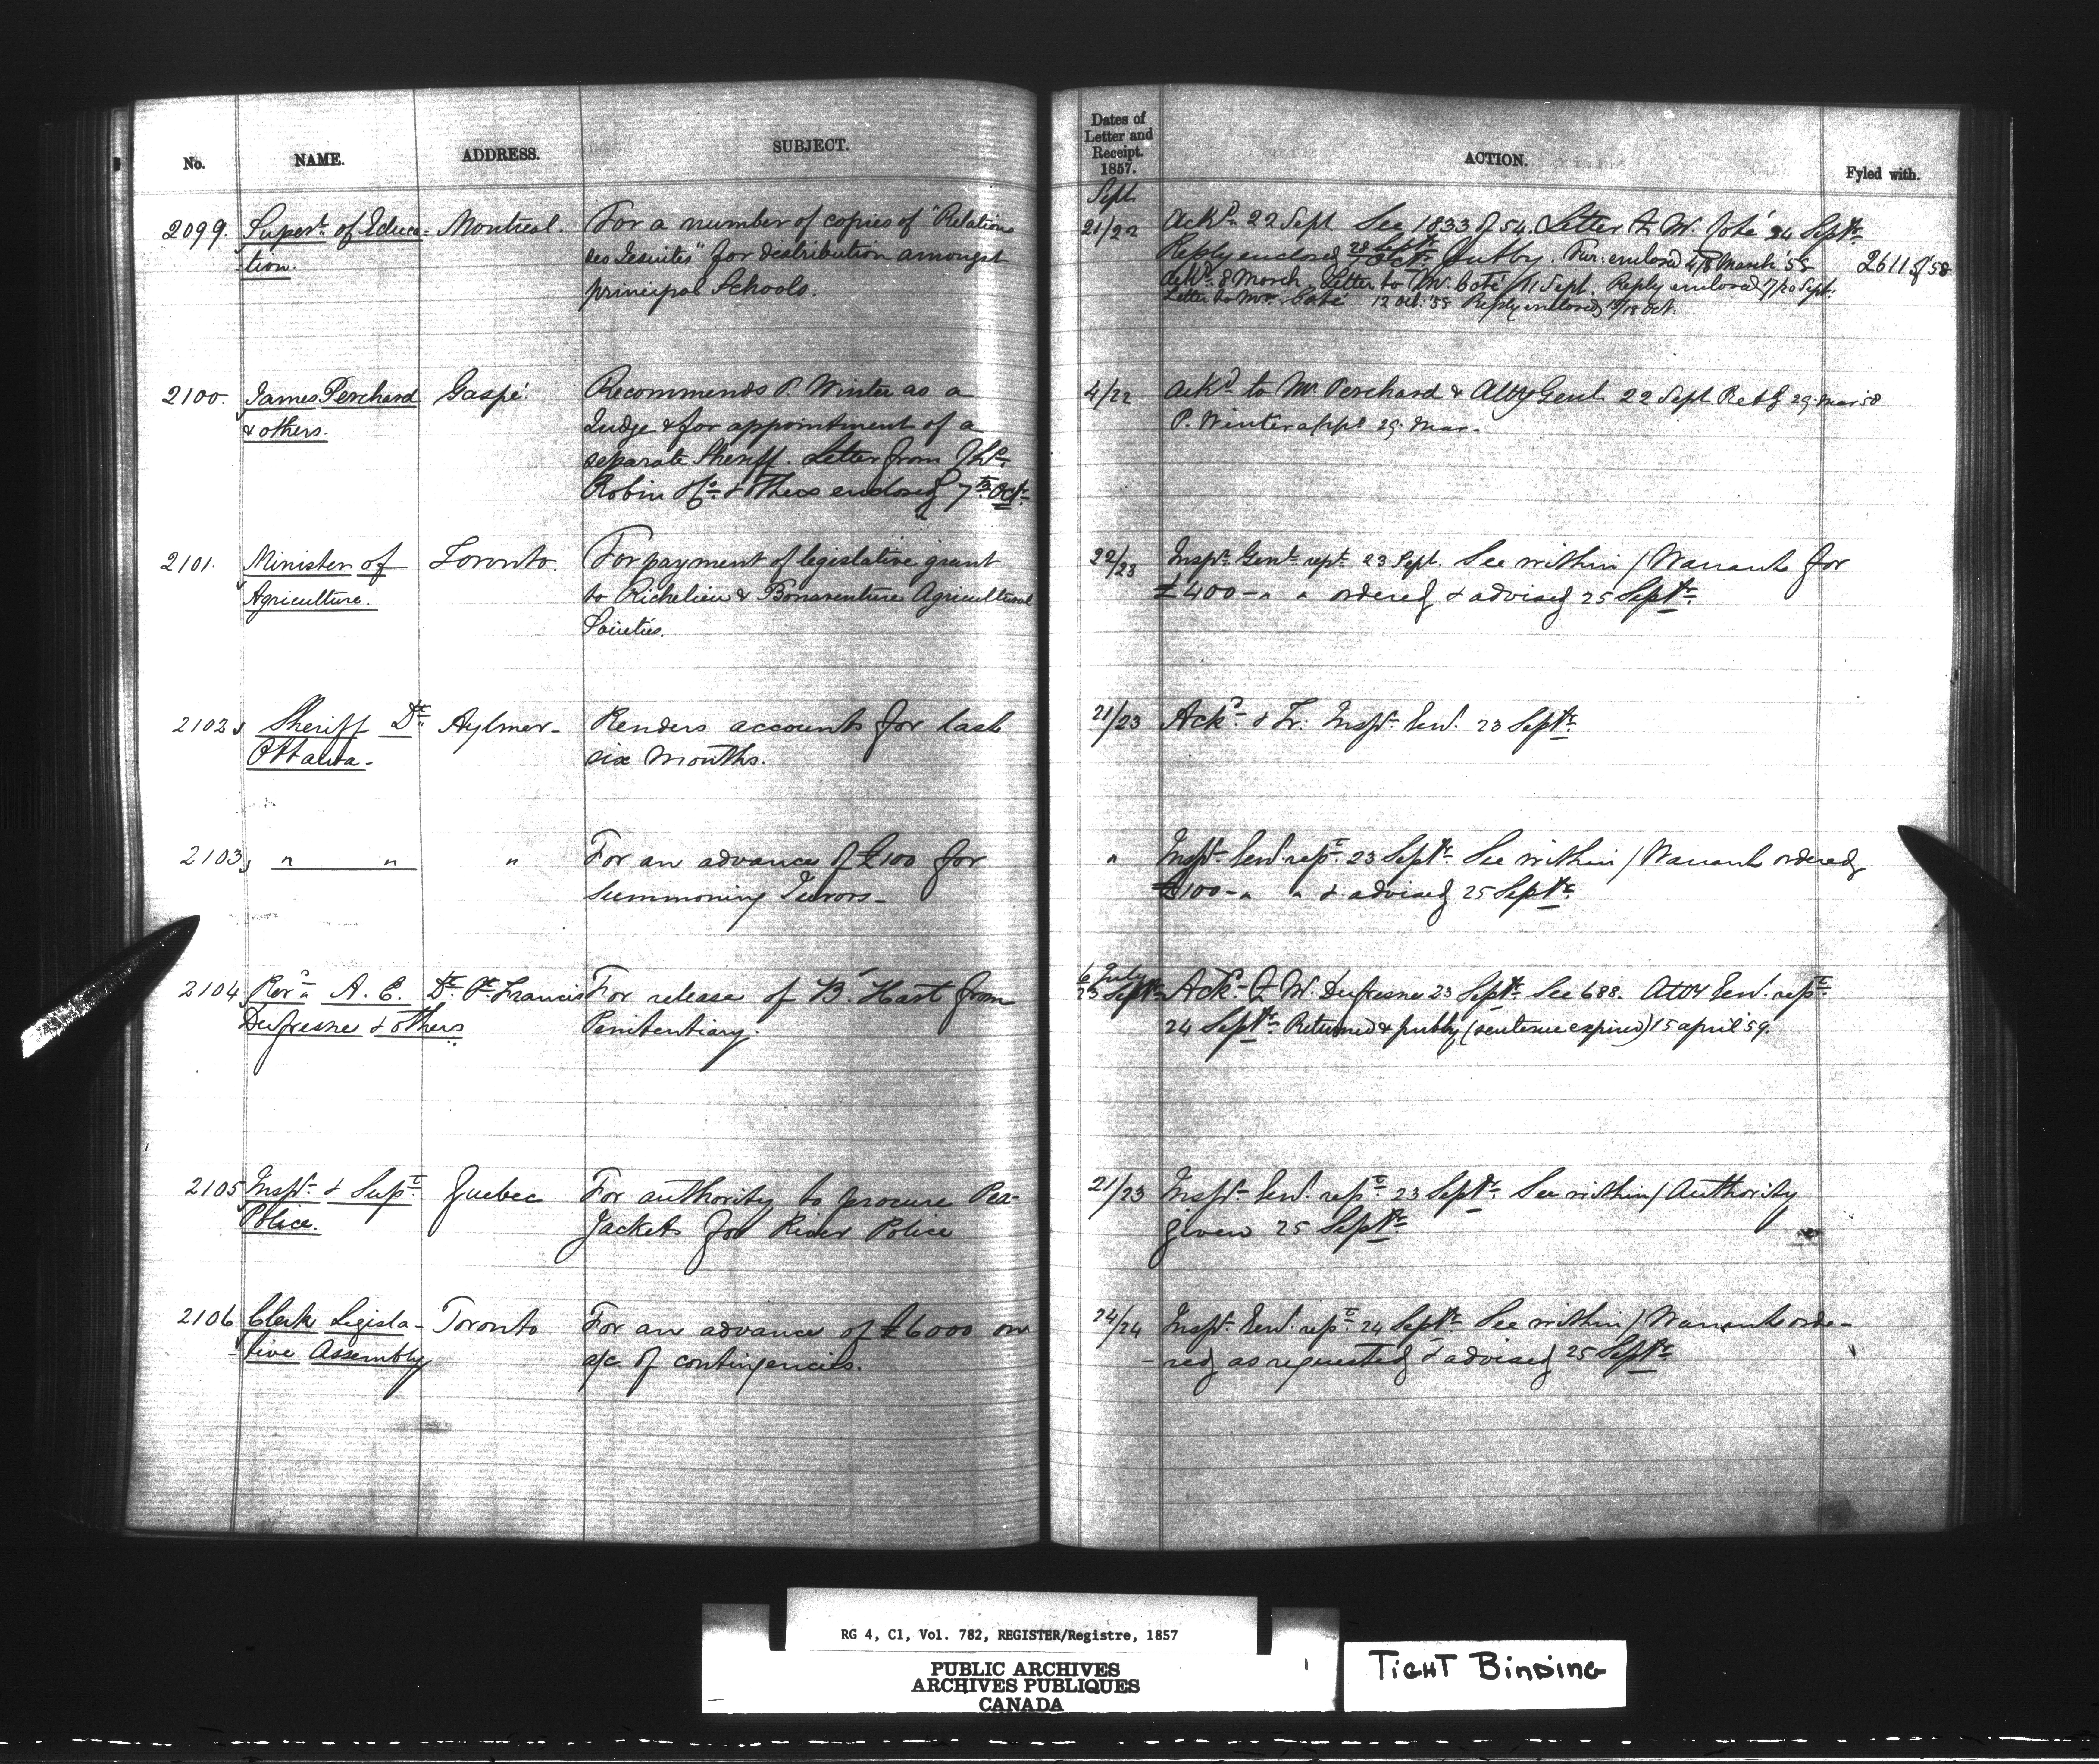 No. NAME. ADDRESS. SUBJECT.
Dates of
Letter and
Receipt.
1857.
ACTION.
Fyled with.
Sept
2099. Supert. of Educa- Montreal. For a number of copies of "Relations
tion. des Jesuites" for distribution amongst
principal Schools.
21/22 Ackd. 22 Sept See 1833 of 54. Letter to W. Coté 24 Septr.
Reply enclosed 28 Septr. 7 Octr. Fur: enclosed 4/8 March '58 2611 of 58
Ackd. 8 March Letter to Mr. Coté 11 Sept. Reply enclosed 7/20 Sept.
Letter to Mr. Coté 12 Oct. '58 Reply enclosed /18 Oct.
2100. James Perchard Gaspé. Recommends P. Winter as a
& others. Judge & for appointment of a
separate Sheriff Letter from
Robin & Co. & others enclosed 7th Octr.
4/22 Ackd. to Mr. Perchard & Atty Genl. 22 Sept. Retd 29 Mar 58
P. Winter appd. 29 Mar.
2101. Minister of Toronto. For payment of legislative grant
Agriculture. to Richelieu & Bonaventure Agricultural
Societies.
22/23 Inspr. Genl. rept. 23 Sept. See within / Warrants for
£400 - " " ordered & advised 25 Septr.
2102 Sheriff Dt. Aylmer- Renders accounts for last
Ottawa- six Months.
21/23 Ackd. & Tr. Inspr. Genl. 23 Septr.
2103 " " " For an advance of £100 for
Summoning Jurors-
" Inspr. Genl. rept. 23 Septr. See within / Warrant ordered
£100 - " " & advised 25 Septr.
2104 Revd. A. E. Dt. St. Francis For release of B. Hart from
Dufresne & others Penitentiary.
6 July
23 Septr. Ackd. W. Dufresne 23 Septr. See 688. Atty Genl. rept.
24 Septr. Returned & putby (sentence expired) 15 april '59.
2105 Inspr. & Supt. Quebec For authority to procure Pea-
Police. Jackets for River Police
21/23 Inspr. Genl. rept. 23 Septr. See within / Authority
given 25 Septr.
2106 Clerk Legisla- Toronto For an advance of £6000 on
tive Assembly a/c of contingencies.
24/24 Inspr. Genl. rept. 24 Septr. See within / Warrant orde-
- red as requested & advised 25 Septr.
RG 4, C1, Vol. 782, REGISTER/Registre, 1857
PUBLIC ARCHIVES
ARCHIVES PUBLIQUES
CANADA
TIGHT BINDING